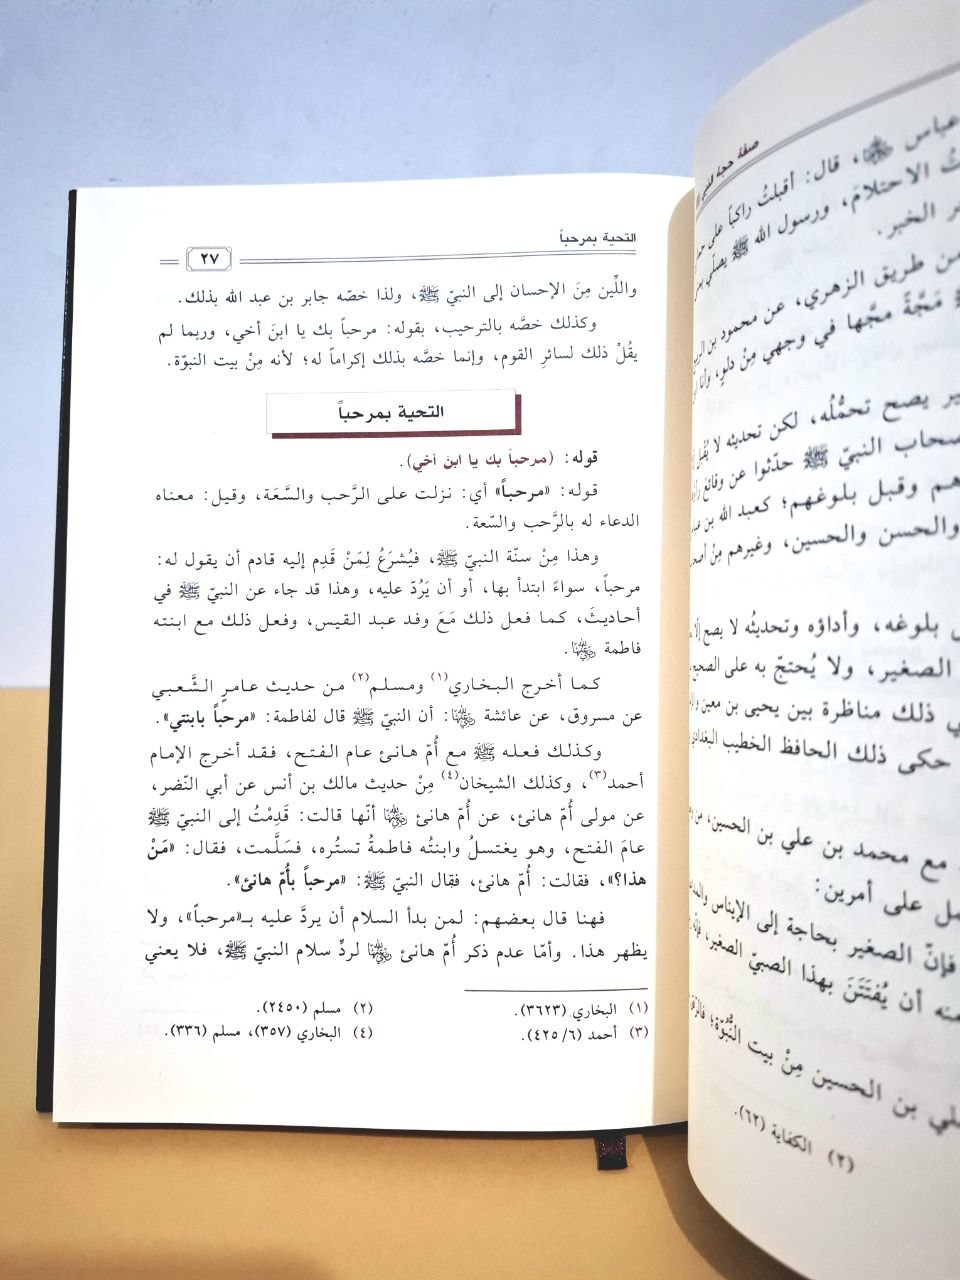 صفة حجة النبي ﷺ
عباس ﵄، قال: أقبلتُ راكباً على
الاحتلامَ، ورسول الله ﷺ يصلّي
الخبر.
من طريق الزهري، عن محمود بن
مَجَّةً مجَّها في وجهي مِنْ دلوٍ، وأنا
يصح تحمُّلُه، لكن تحديثه لا يُقبل
النبيّ ﷺ حدّثوا عن وقائعَ
وقبل بلوغهم؛ كعبد الله بن
والحسن والحسين، وغيرهم مِنْ
بلوغه، وأداؤه وتحديثُه لا يصح إلّا
الصغير، ولا يُحتجّ به على الصحيح
ذلك مناظرة بين يحيى بن معين
حكى ذلك الحافظ الخطيب البغدادي
مع محمد بن علي بن الحسين، من
على أمرين:
فإنّ الصغير بحاجة إلى الإيناس
أن يُفتَتَنَ بهذا الصبيّ الصغير،
بن الحسين مِنْ بيت النُّبُوّة؛
(٢) الكفاية (٦٢).
التحية بمرحباً
٢٧
واللِّين مِنَ الإحسان إلى النبيّ ﷺ، ولذا خصّه جابر بن عبد الله بذلك.
وكذلك خصَّه بالترحيب، بقوله: مرحباً بك يا ابنَ أخي، وربما لم
يقُلْ ذلك لسائرِ القوم، وإنما خصَّه بذلك إكراماً له؛ لأنه مِنْ بيت النبوّة.
التحية بمرحباً
قوله: (مرحباً بك يا ابن أخي).
قوله: «مرحباً» أي: نزلت على الرَّحب والسَّعَة، وقيل: معناه
الدعاء له بالرَّحب والسّعة.
وهذا مِنْ سنّة النبيّ ﷺ، فيُشرَعُ لِمَنْ قَدِم إليه قادم أن يقول له:
مرحباً، سواءً ابتدأ بها، أو أن يَرُدّ عليه، وهذا قد جاء عن النبيّ ﷺ في
أحاديثَ، كما فعل ذلك مَعَ وفد عبد القيس، وفعل ذلك مع ابنته
فاطمة ﵂.
كما أخرج البخاري(١) ومسلم(٢) من حديث عامرٍ الشَّعبي
عن مسروق، عن عائشة ﵂: أن النبيّ ﷺ قال لفاطمة: «مرحباً بابنتي».
وكذلك فعله ﷺ مع أُمّ هانئ عام الفتح، فقد أخرج الإمام
أحمد(٣)، وكذلك الشيخان(٤) مِنْ حديث مالك بن أنس عن أبي النّضر،
عن مولى أُم هانئ، عن أُمّ هانئ ﵂ أنّها قالت: قَدِمْتُ إلى النبيّ ﷺ
عامَ الفتح، وهو يغتسلُ وابنتُه فاطمةُ تستُره، فسَلَّمت، فقال: «مَنْ
هذا؟»، فقالت: أُمّ هانئ، فقال النبيّ ﷺ: «مرحباً بأُمّ هانئ».
فهنا قال بعضهم: لمن بدأ السلام أن يردَّ عليه بـ«مرحباً»، ولا
يظهر هذا. وأمّا عدم ذكر أُمّ هانئ ﵂ لردِّ سلام النبيّ ﷺ، فلا يعني
(١) البخاري (٣٦٢٣).
(٢) مسلم (٢٤٥٠).
(٣) أحمد (٦/ ٤٢٥).
(٤) البخاري (٣٥٧)، مسلم (٣٣٦).